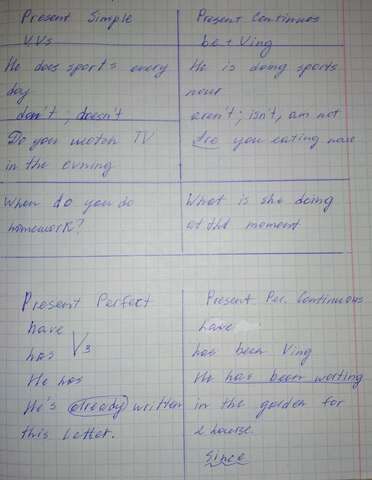 Present Simple
V, Vs
He does sports every
day
don't; doesn't
Do you watch TV
in the evning
When do you do
homework?
Present Continues
be + Ving
He is doing sports
now
aren't; isn't, am not
Are you eating now
What is she doing
at the moment
Present Perfect
have
has V3
He has
He's already written
this letter.
Present Per. Continuous
have
has been Ving
He has been working
in the garden for
2 hourse.
Since